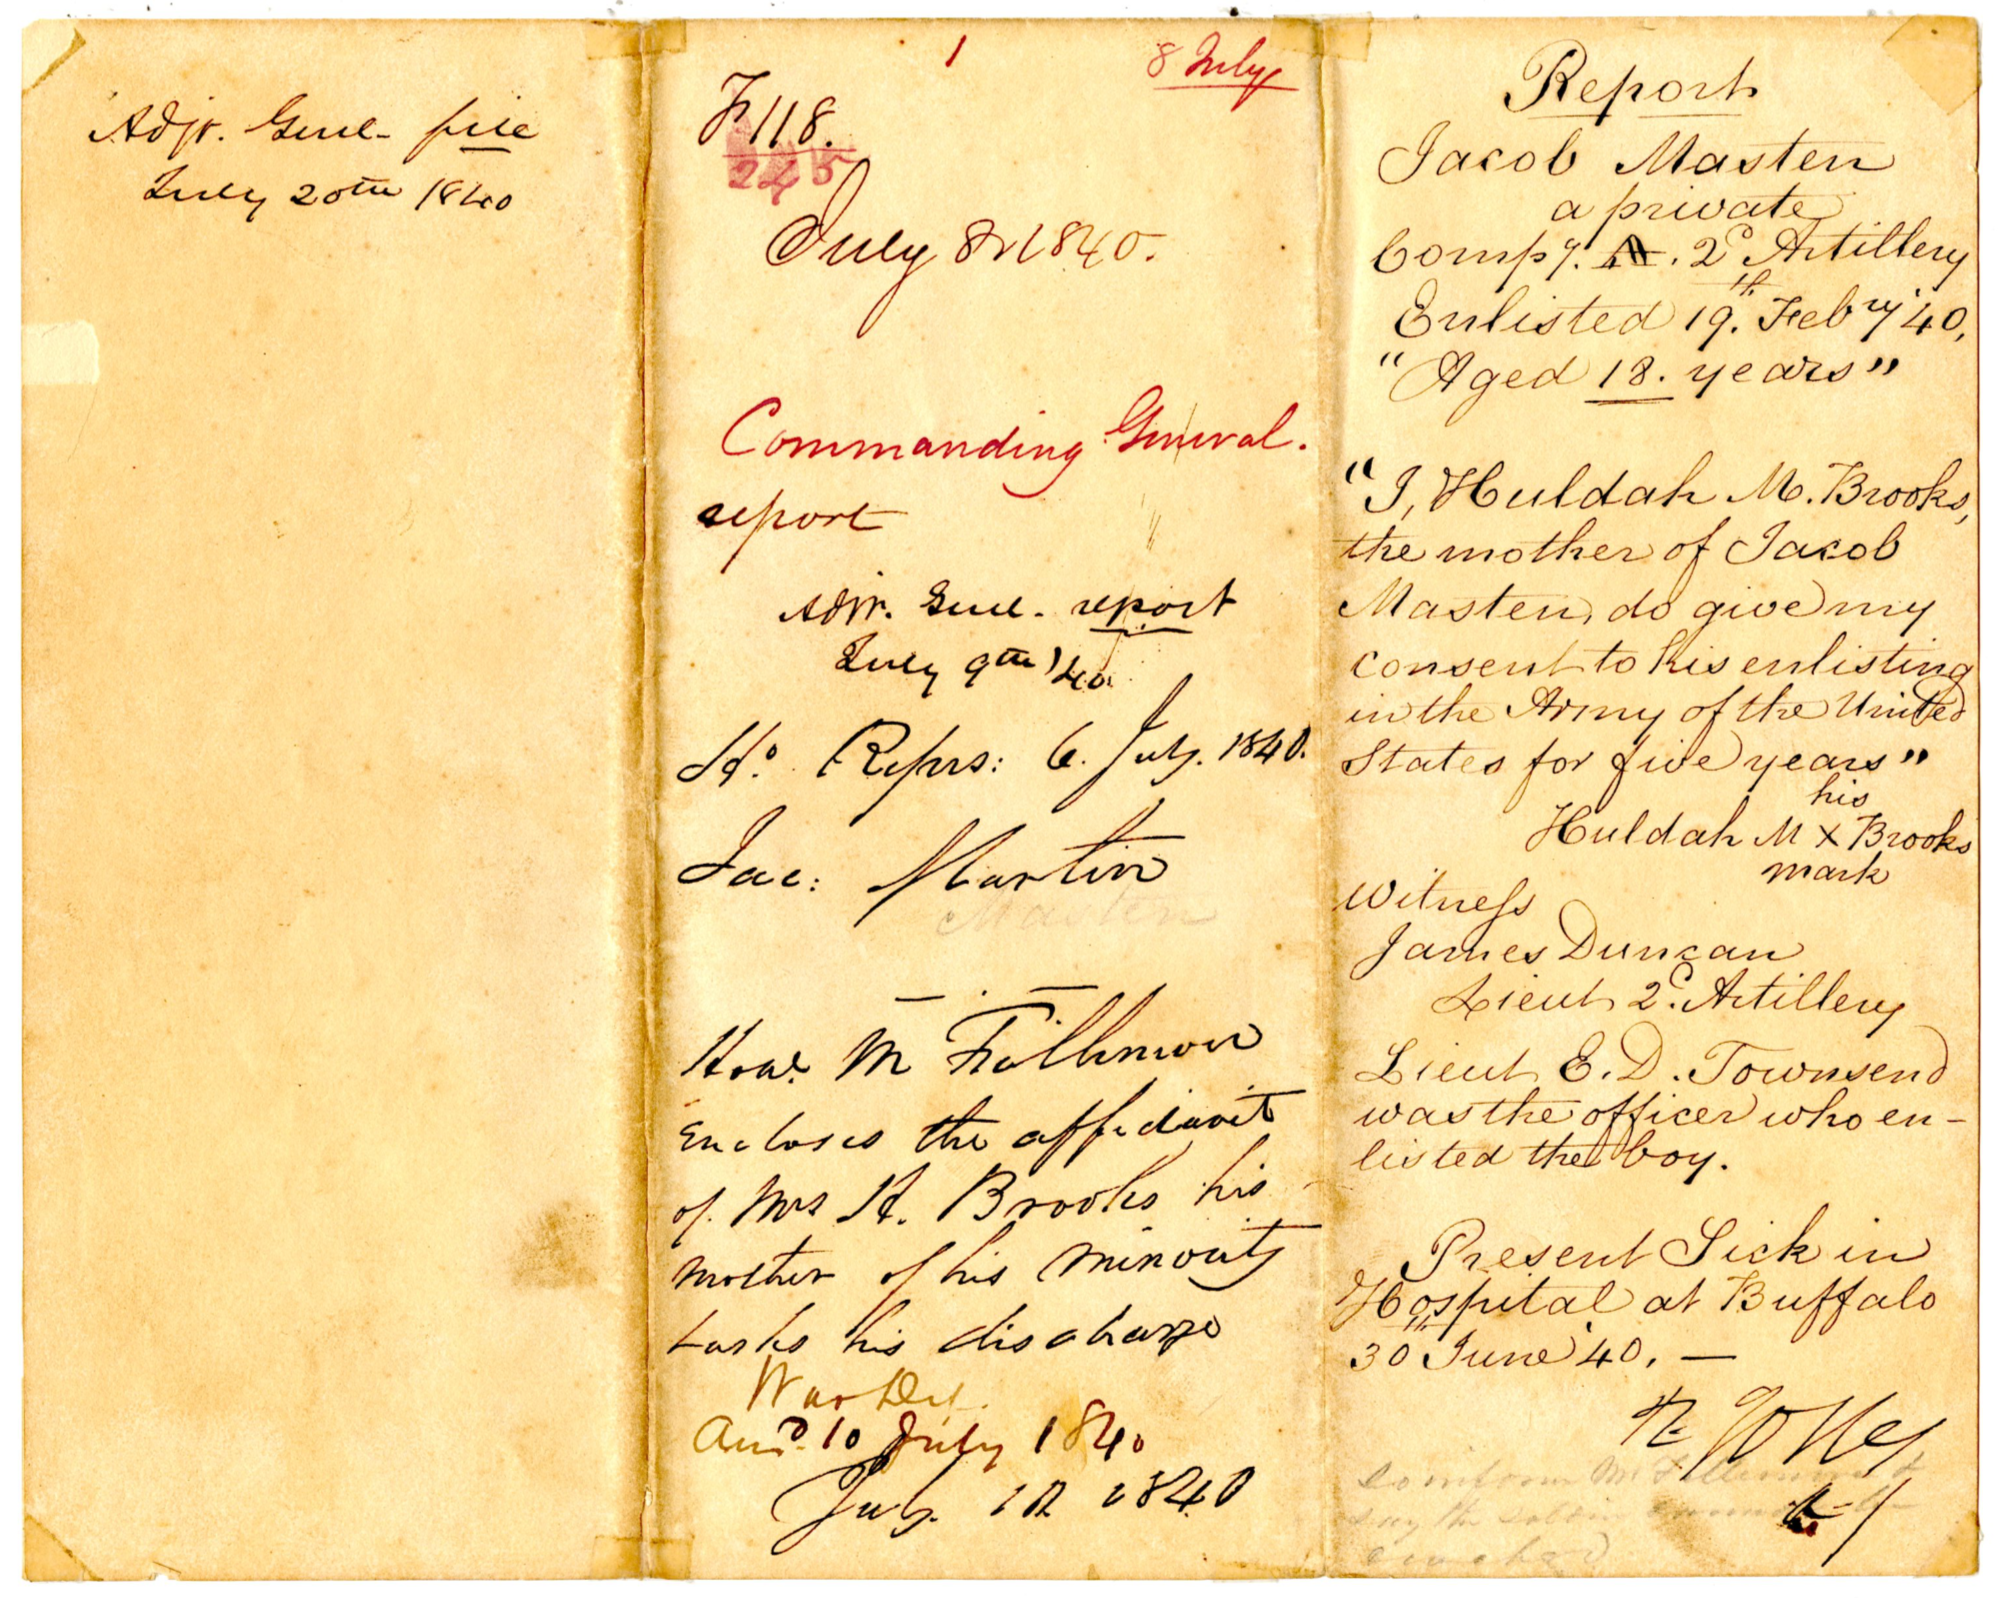 Adjt. Genl. file
July 20th 1840
1
8 July
F 118.
245
July 8th 1840.
Commanding General.
report
Adjt. Genl. report
July 9th '40
Ho. Reprs: 6. July. 1840.
Jac: Martin
Masten
Honl. M Fillmore
Encloses the affidavit
of Mrs H. Brooks his
mother of his minority
& asks his discharge
War Dept.
Ansd. 10 July 1840
July 1840
Report
Jacob Masten
a private
Compy. . 2d Artillery
Enlisted 19th. Febry '40,
"Aged 18. years"
"I, Huldah M. Brooks,
the mother of Jacob
Masten, do give my
consent to his enlisting
in the Army of the United
States for five years"
his
Huldah M X Brooks
mark
Witness
James Duncan
Lieut 2d. Artillery
Lieut E. D. Townsend
was the officer who en-
listed the boy.
Present Sick in
Hospital at Buffalo
30th June '40. —
to inform Mr Fillmore &
say the